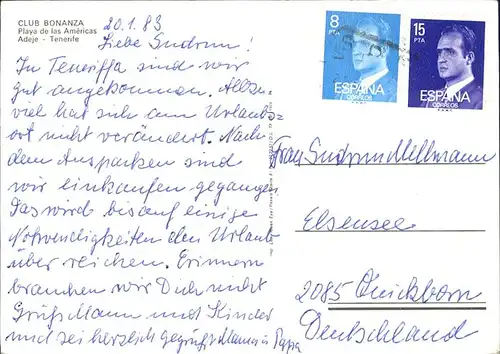 CLUB BONANZA
Playa de las Américas
Adeje - Tenerife
20.1.83
Liebe Gudrun!
In Teneriffa sind wir
gut angekommen. Allzu-
viel hat sich am Urlaubs-
ort nicht verändert. Nach
dem Auspacken sind
wir einkaufen gegangen
Das wird bis auf einige
Notwendigkeiten den Urlaub
über reichen. Erinnern
brauchen wir Dich nicht
Grüß Mann und Kinder
und sei herzlich gegrüßt Mama u Papa
8
PTA
ESPAÑA
CORREOS
15
PTA
ESPAÑA
CORREOS
Frau Gudrun Mellmann
Elsensee
2085 Quickborn
Deutschland